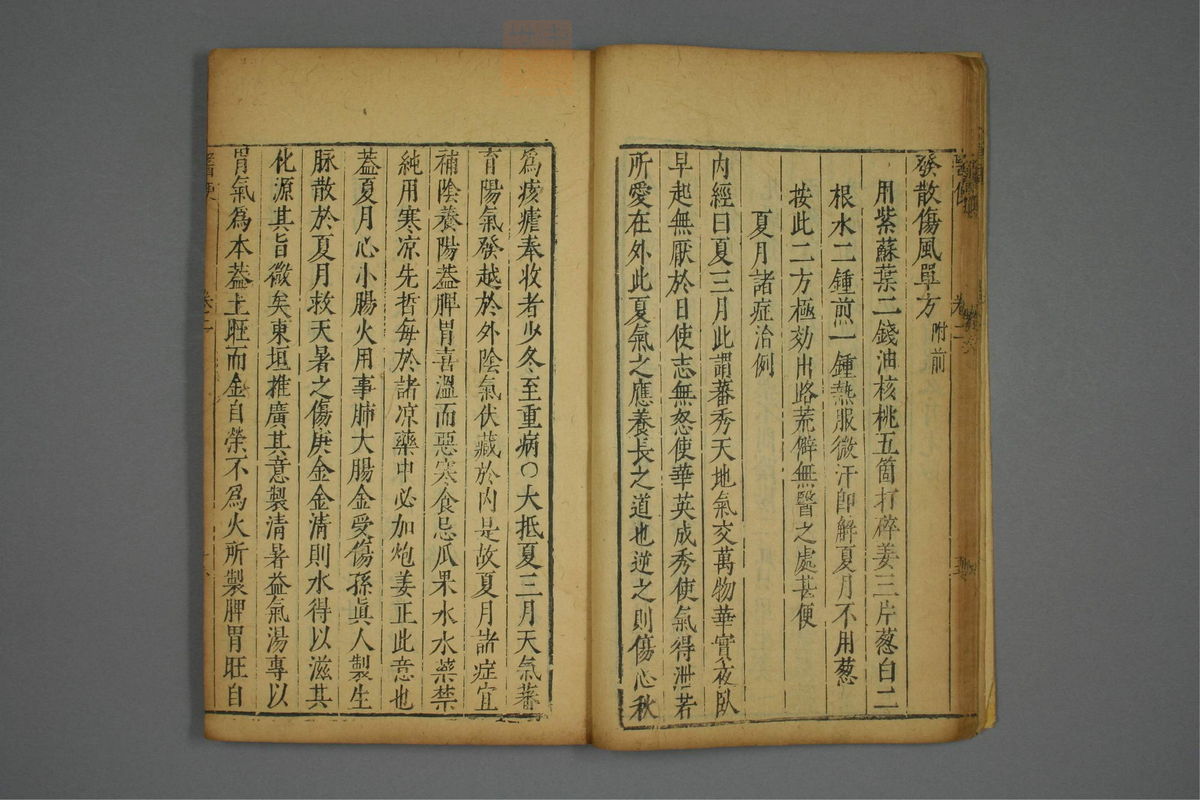 發散傷風單方附前
用紫蘇葉二錢油核桃五箇打碎姜三片葱白二
根水二鍾煎一鍾熱服微汗即解夏月不用葱
按此二方極効出路荒僻無醫之處甚便
夏月諸症治例
內經曰夏三月此謂蕃秀天地氣交萬物華實夜臥
早起無厭於日使志無怒使華英成秀使氣得泄若
所愛在外此夏氣之應養長之道也逆之則傷心秋
爲痎瘧奉收者少冬至重病○大抵夏三月天氣蕃
育陽氣發越於外陰氣伏藏於內是故夏月諸症宜
補陰養陽蓋脾胃喜溫而惡寒食忌瓜果水水藥禁
純用寒凉先哲每於諸凉藥中必加炮姜正此意也
蓋夏月心小腸火用事肺大腸金受傷孫眞人製生
脉散於夏月救天暑之傷庚金金清則水得以滋其
化源其旨微矣東垣推廣其意製清暑益氣湯專以
胃氣爲本蓋土旺而金自榮不爲火所製脾胃旺自